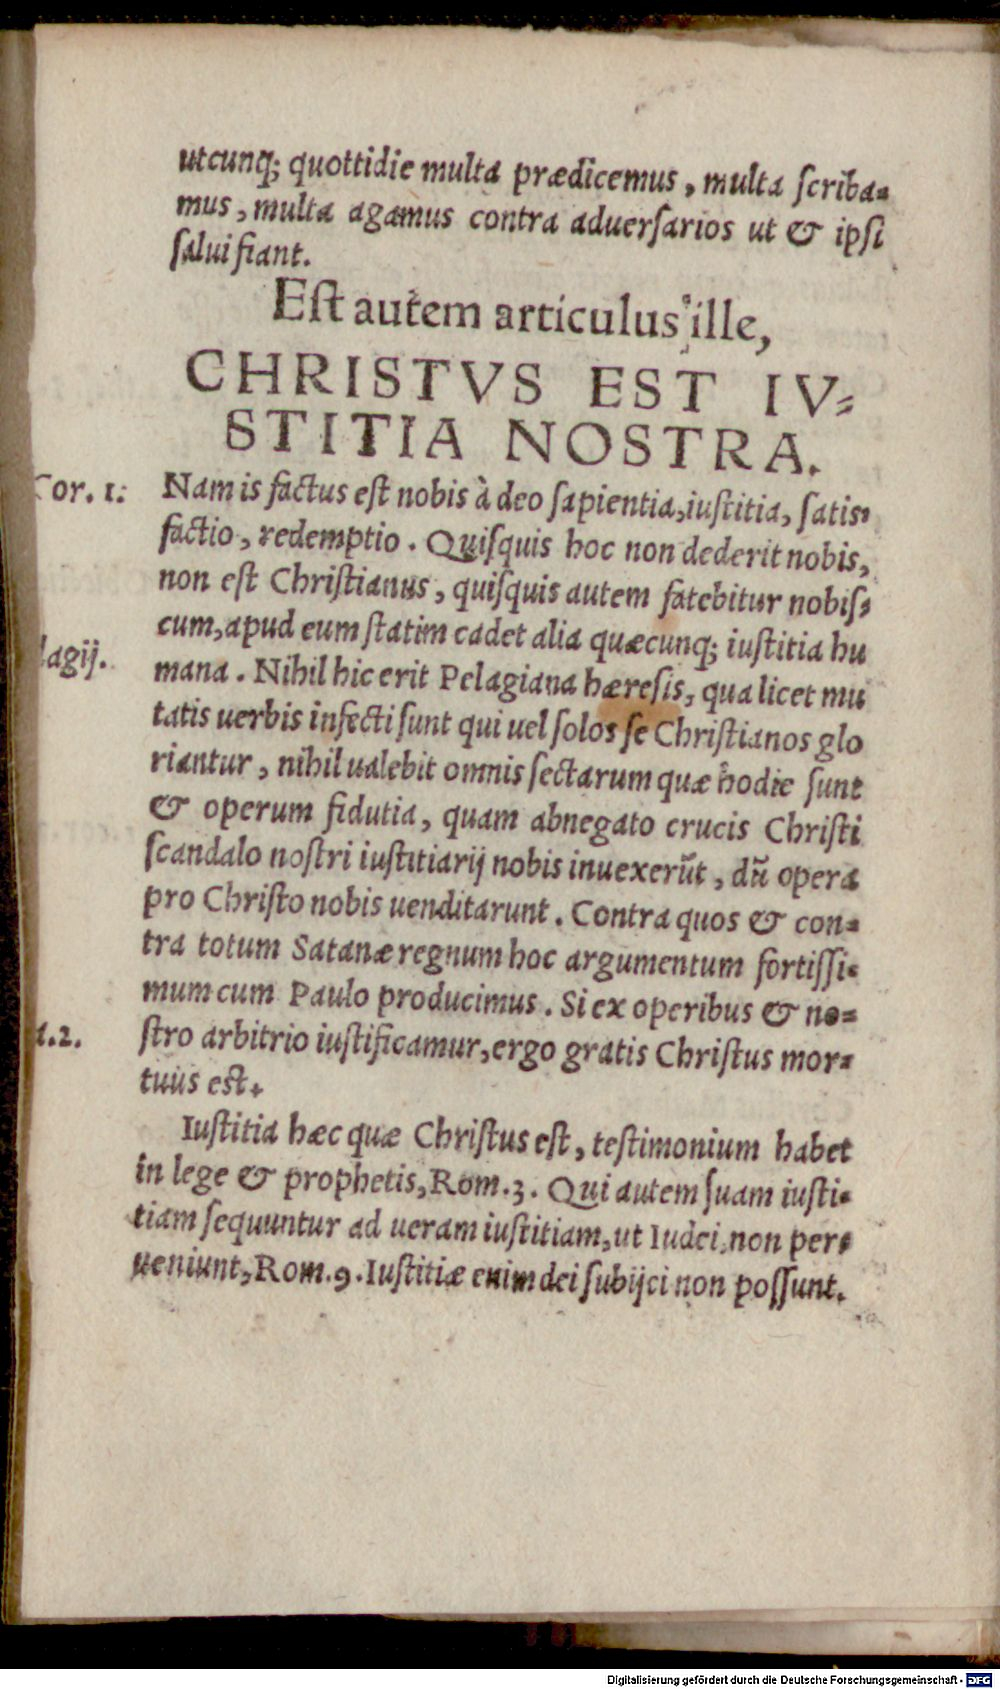 utcunq; quottidie multa prædicemus, multa ſcriba-
mus, multa agamus contra aduerſarios ut & ipſi
ſalui fiant.
Eſt autem articulus ille,
CHRISTVS EST IV-
STITIA NOSTRA.
Cor. 1.
Nam is factus eſt nobis à deo ſapientia, iuſtitia, ſatis-
factio, redemptio. Quiſquis hoc non dederit nobis,
non eſt Chriſtianus, quiſquis autem fatebitur nobiſ-
cum, apud eum ſtatim cadet alia quæcunq; iuſtitia hu
lagij.
mana. Nihil hic erit Pelagiana hæreſis, qua licet mu
tatis uerbis infecti ſunt qui uel ſolos ſe Chriſtianos glo
riantur, nihil ualebit omnis ſectarum quæ hodie ſunt
& operum fidutia, quam abnegato crucis Chriſti
ſcandalo noſtri iuſtitiarij nobis inuexerūt, dū opera
pro Chriſto nobis uenditarunt. Contra quos & con-
tra totum Satanæ regnum hoc argumentum fortiſſi-
mum cum Paulo producimus. Si ex operibus & no-
l.2.
ſtro arbitrio iuſtificamur, ergo gratis Chriſtus mor-
tuus eſt.
Iuſtitia hæc quæ Chriſtus eſt, teſtimonium habet
in lege & prophetis, Rom.3. Qui autem ſuam iuſti-
tiam ſequuntur ad ueram iuſtitiam, ut Iudei, non per-
ueniunt, Rom.9. Iuſtitiæ enim dei ſubijci non poſſunt.
Digitalisierung gefördert durch die Deutsche Forschungsgemeinschaft - DFG